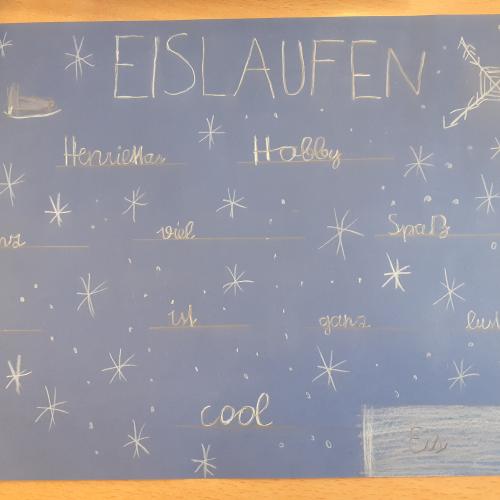 EISLAUFEN
Henriettas Hobby
viel Spaß
ist ganz
cool